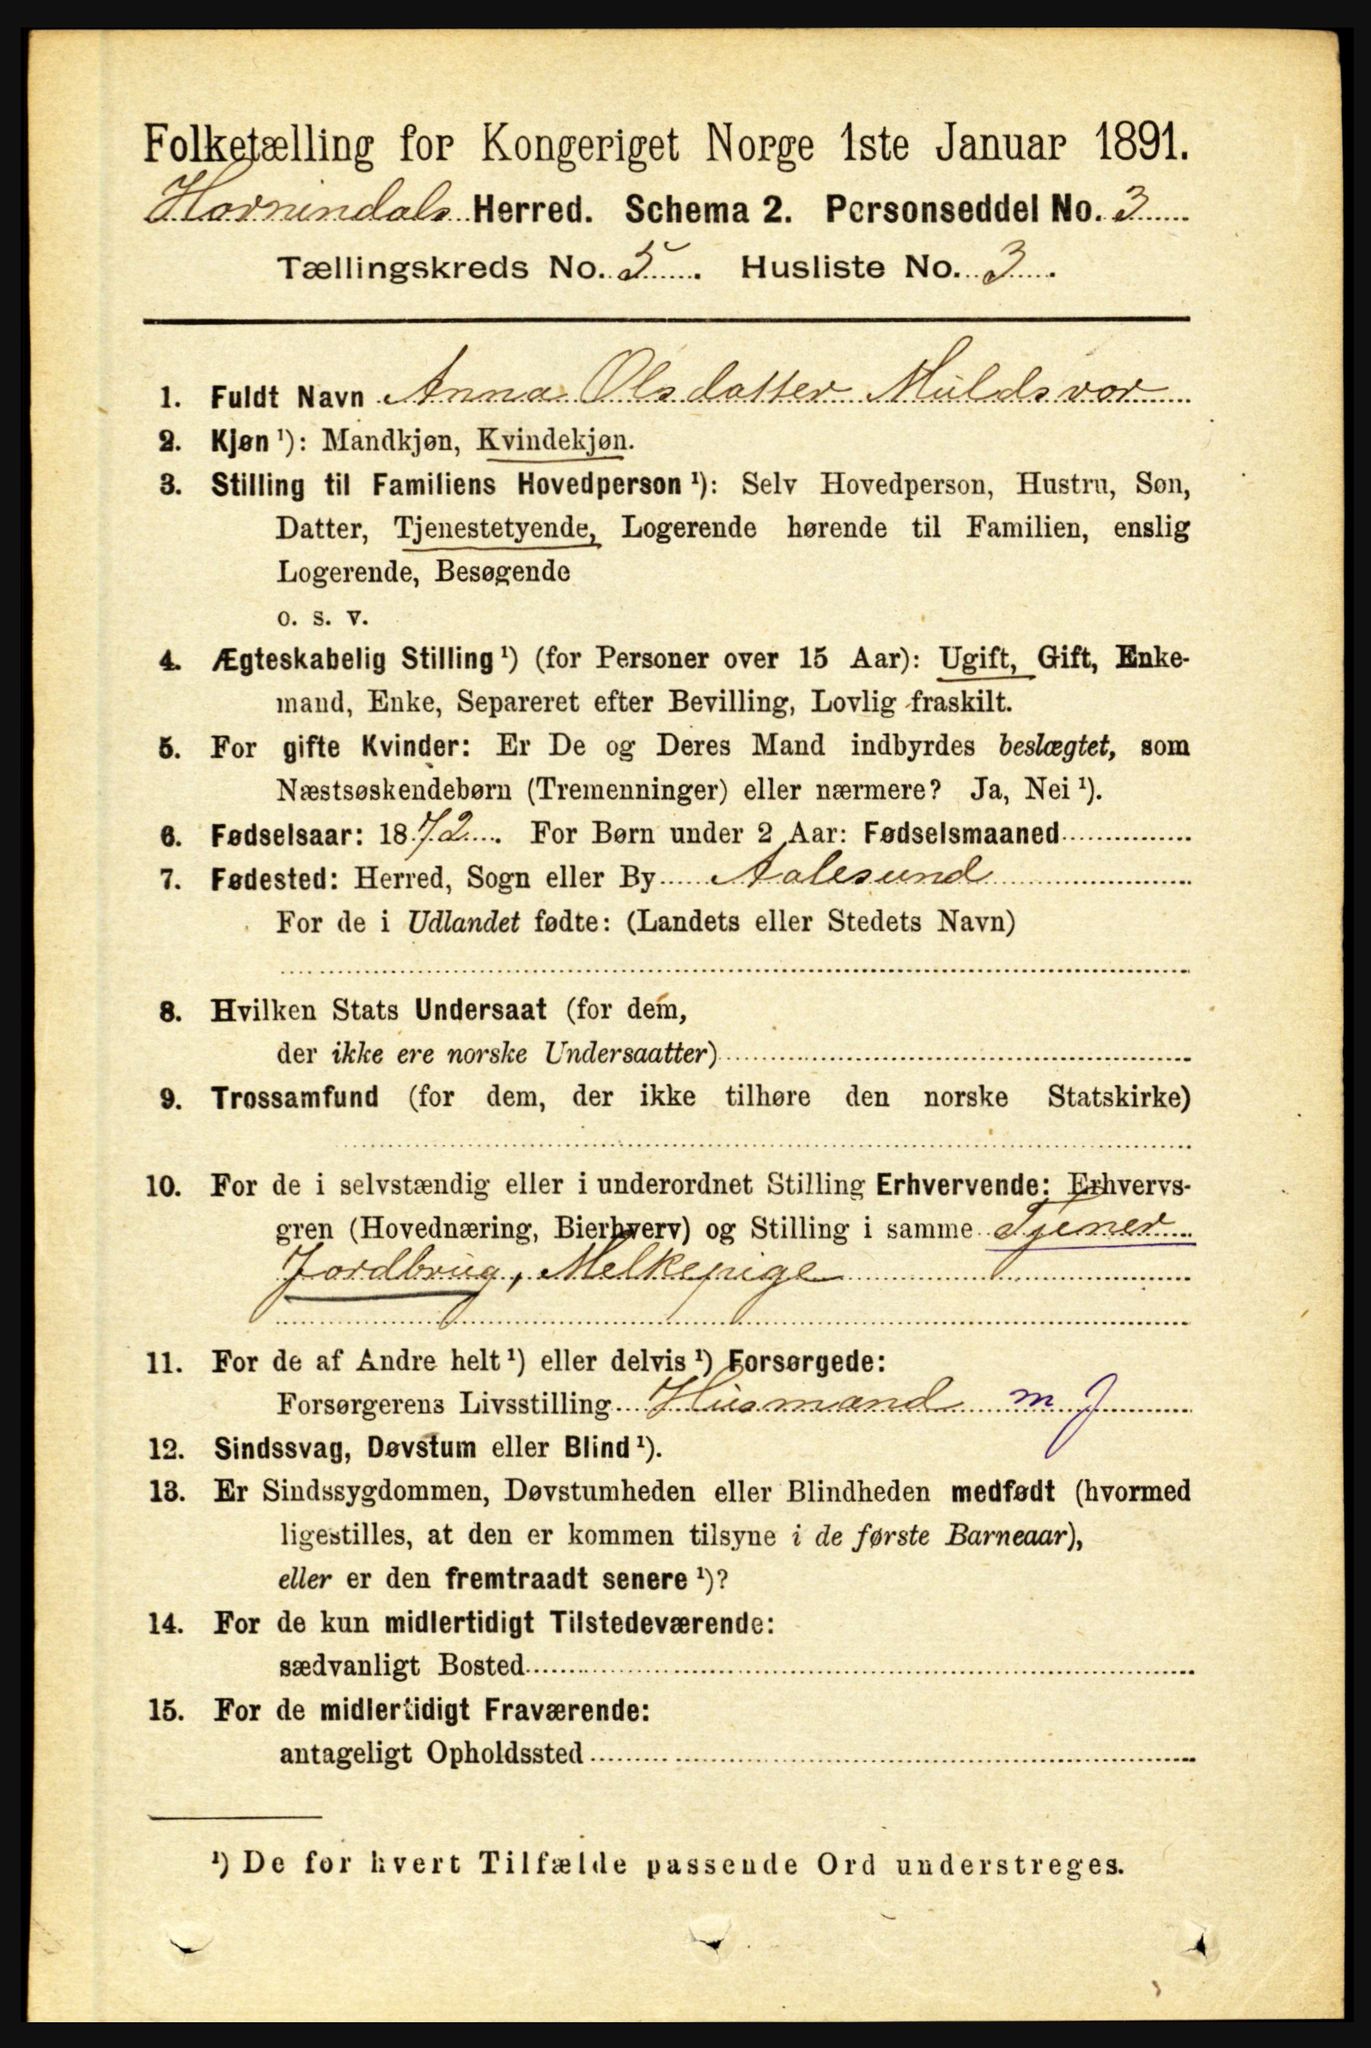 Folketælling for Kongeriget Norge 1ste Januar 1891.
Hornindals Herred. Schema 2. Personseddel No. 3
Tællingskreds No. 5. Husliste No. 3.
1. Fuldt Navn Anna Olsdatter Muldsvor
2. Kjøn ¹): Mandkjøn, Kvindekjøn.
3. Stilling til Familiens Hovedperson ¹): Selv Hovedperson, Hustru, Søn,
Datter, Tjenestetyende, Logerende hørende til Familien, enslig
Logerende, Besøgende
o. s. v.
4. Ægteskabelig Stilling ¹) (for Personer over 15 Aar): Ugift, Gift, Enke-
mand, Enke, Separeret efter Bevilling, Lovlig fraskilt.
5. For gifte Kvinder: Er De og Deres Mand indbyrdes beslægtet, som
Næstsøskendebørn (Tremenninger) eller nærmere? Ja, Nei ¹).
6. Fødselsaar: 1872. For Børn under 2 Aar: Fødselsmaaned
7. Fødested: Herred, Sogn eller By Aalesund
For de i Udlandet fødte: (Landets eller Stedets Navn)
8. Hvilken Stats Undersaat (for dem,
der ikke ere norske Undersaatter)
9. Trossamfund (for dem, der ikke tilhøre den norske Statskirke)
10. For de i selvstændig eller i underordnet Stilling Erhvervende: Erhvervs-
gren (Hovednæring, Bierhverv) og Stilling i samme Tjener
Jordbrug, Melkepige
11. For de af Andre helt ¹) eller delvis ¹) Forsørgede:
Forsørgerens Livsstilling Husmand m J
12. Sindssvag, Døvstum eller Blind ¹).
13. Er Sindssygdommen, Døvstumheden eller Blindheden medfødt (hvormed
ligestilles, at den er kommen tilsyne i de første Barneaar),
eller er den fremtraadt senere ¹)?
14. For de kun midlertidigt Tilstedeværende:
sædvanligt Bosted
15. For de midlertidigt Fraværende:
antageligt Opholdssted
¹) De for hvert Tilfælde passende Ord understreges.